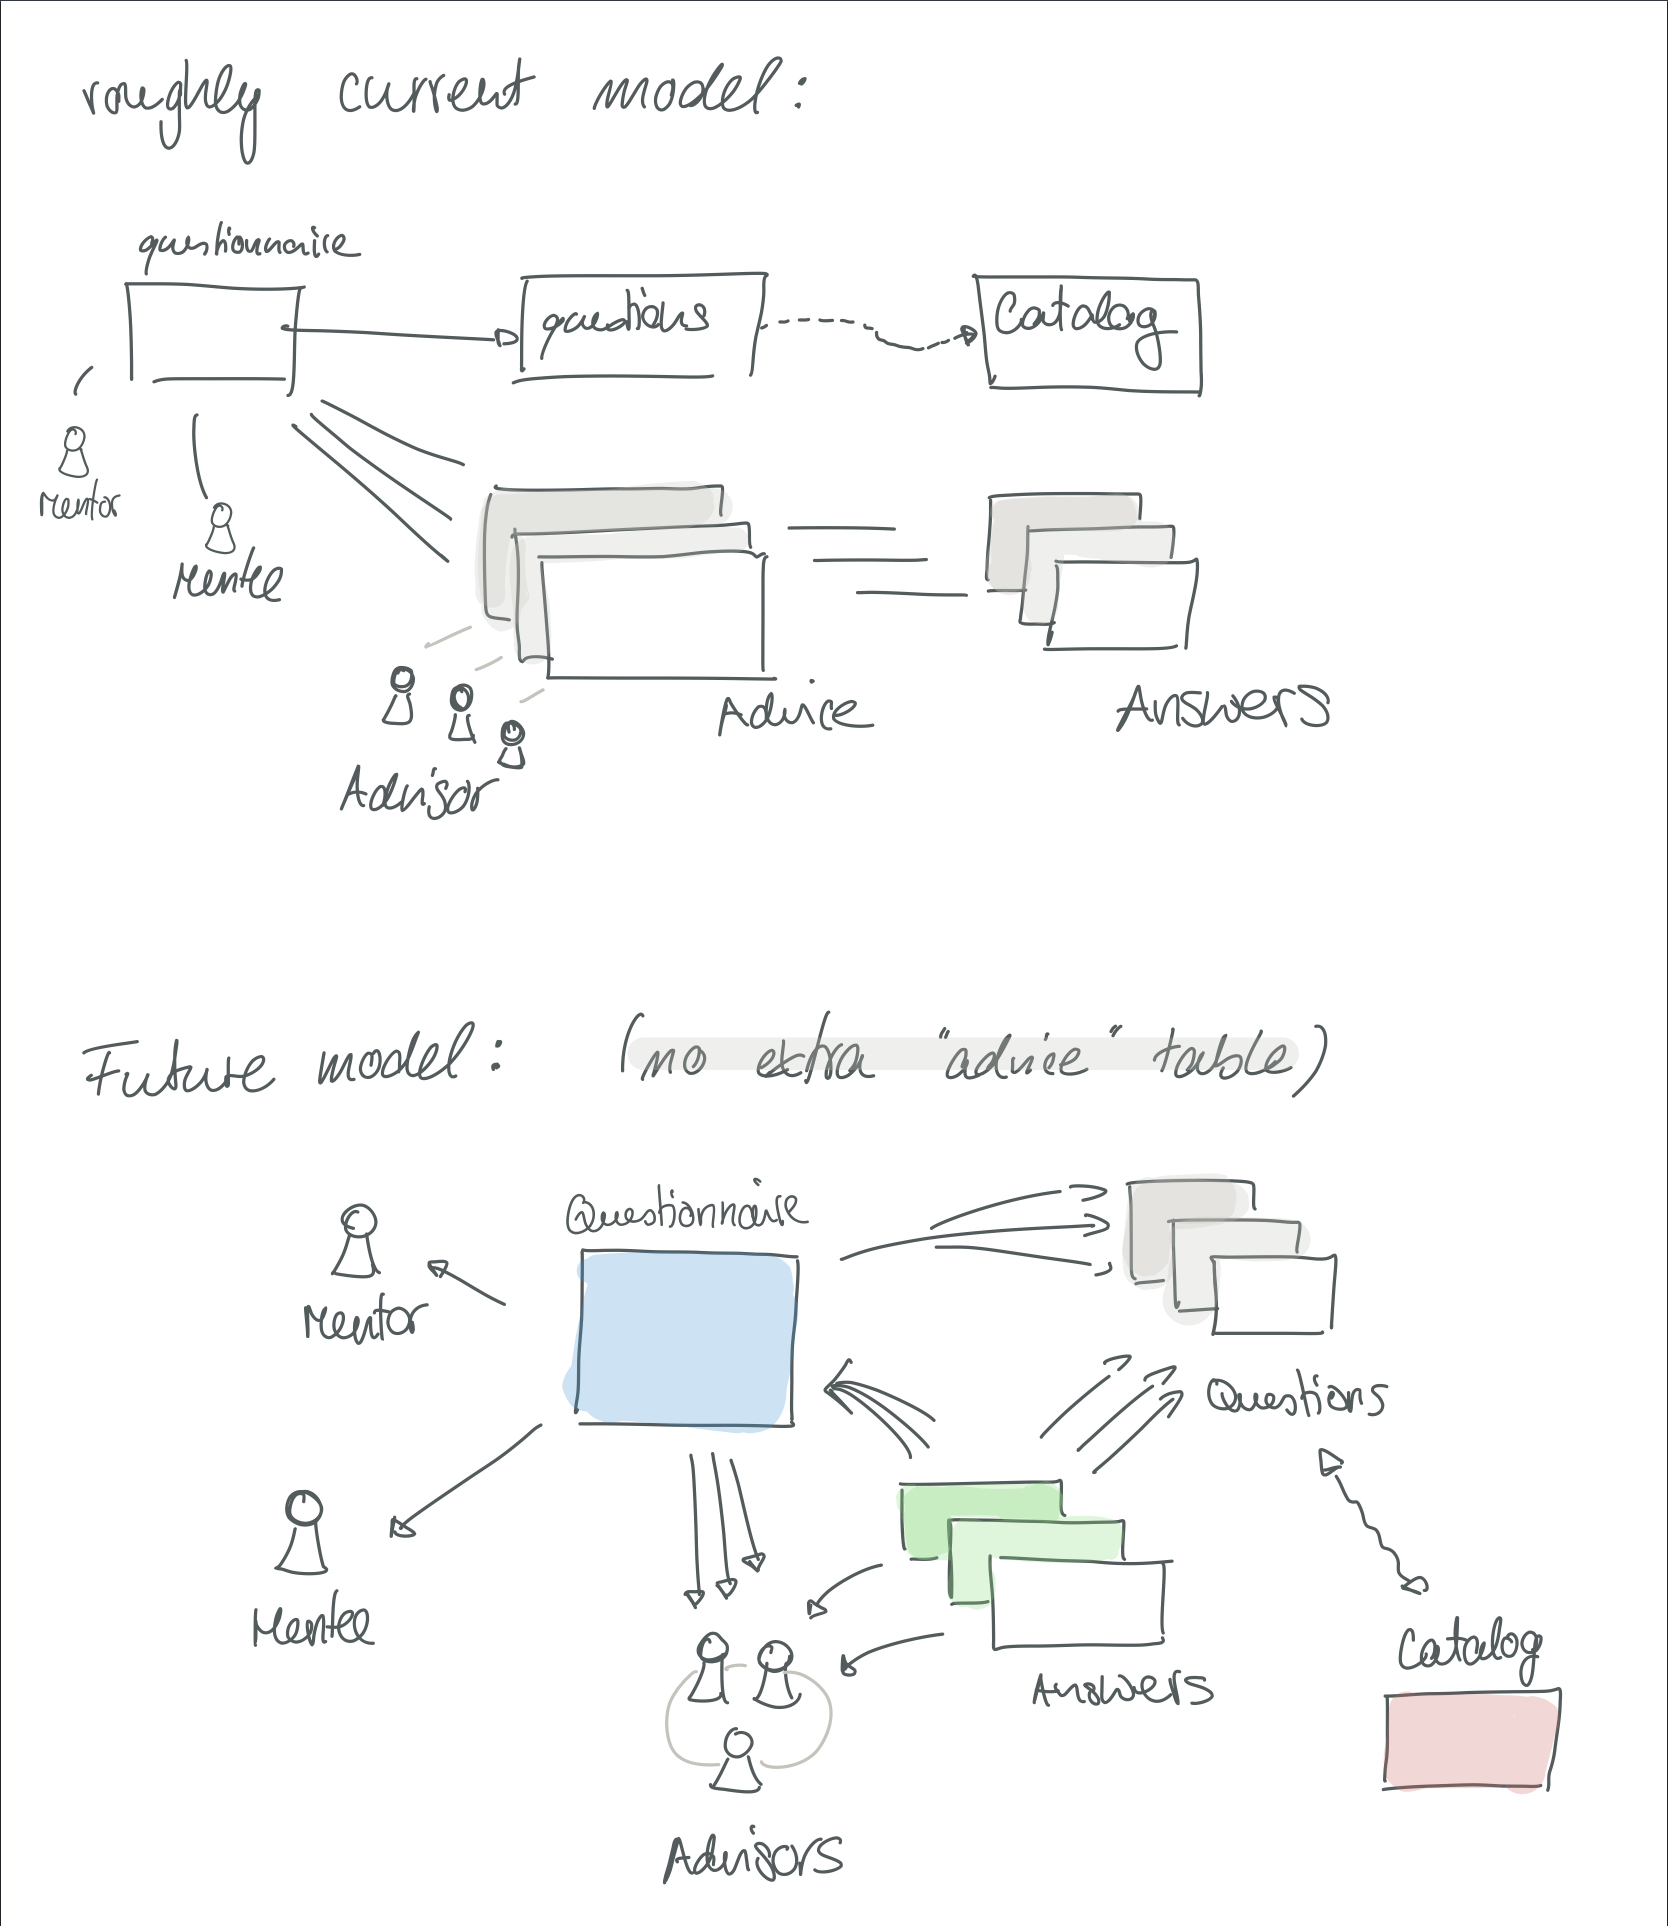 roughly current model:
questionnaire
questions
Catalog
Mentor
Mentee
Advice
Answers
Advisor
Future model: (no extra "advice" table)
Questionnaire
Mentor
Questions
Mentee
Answers
Catalog
Advisors